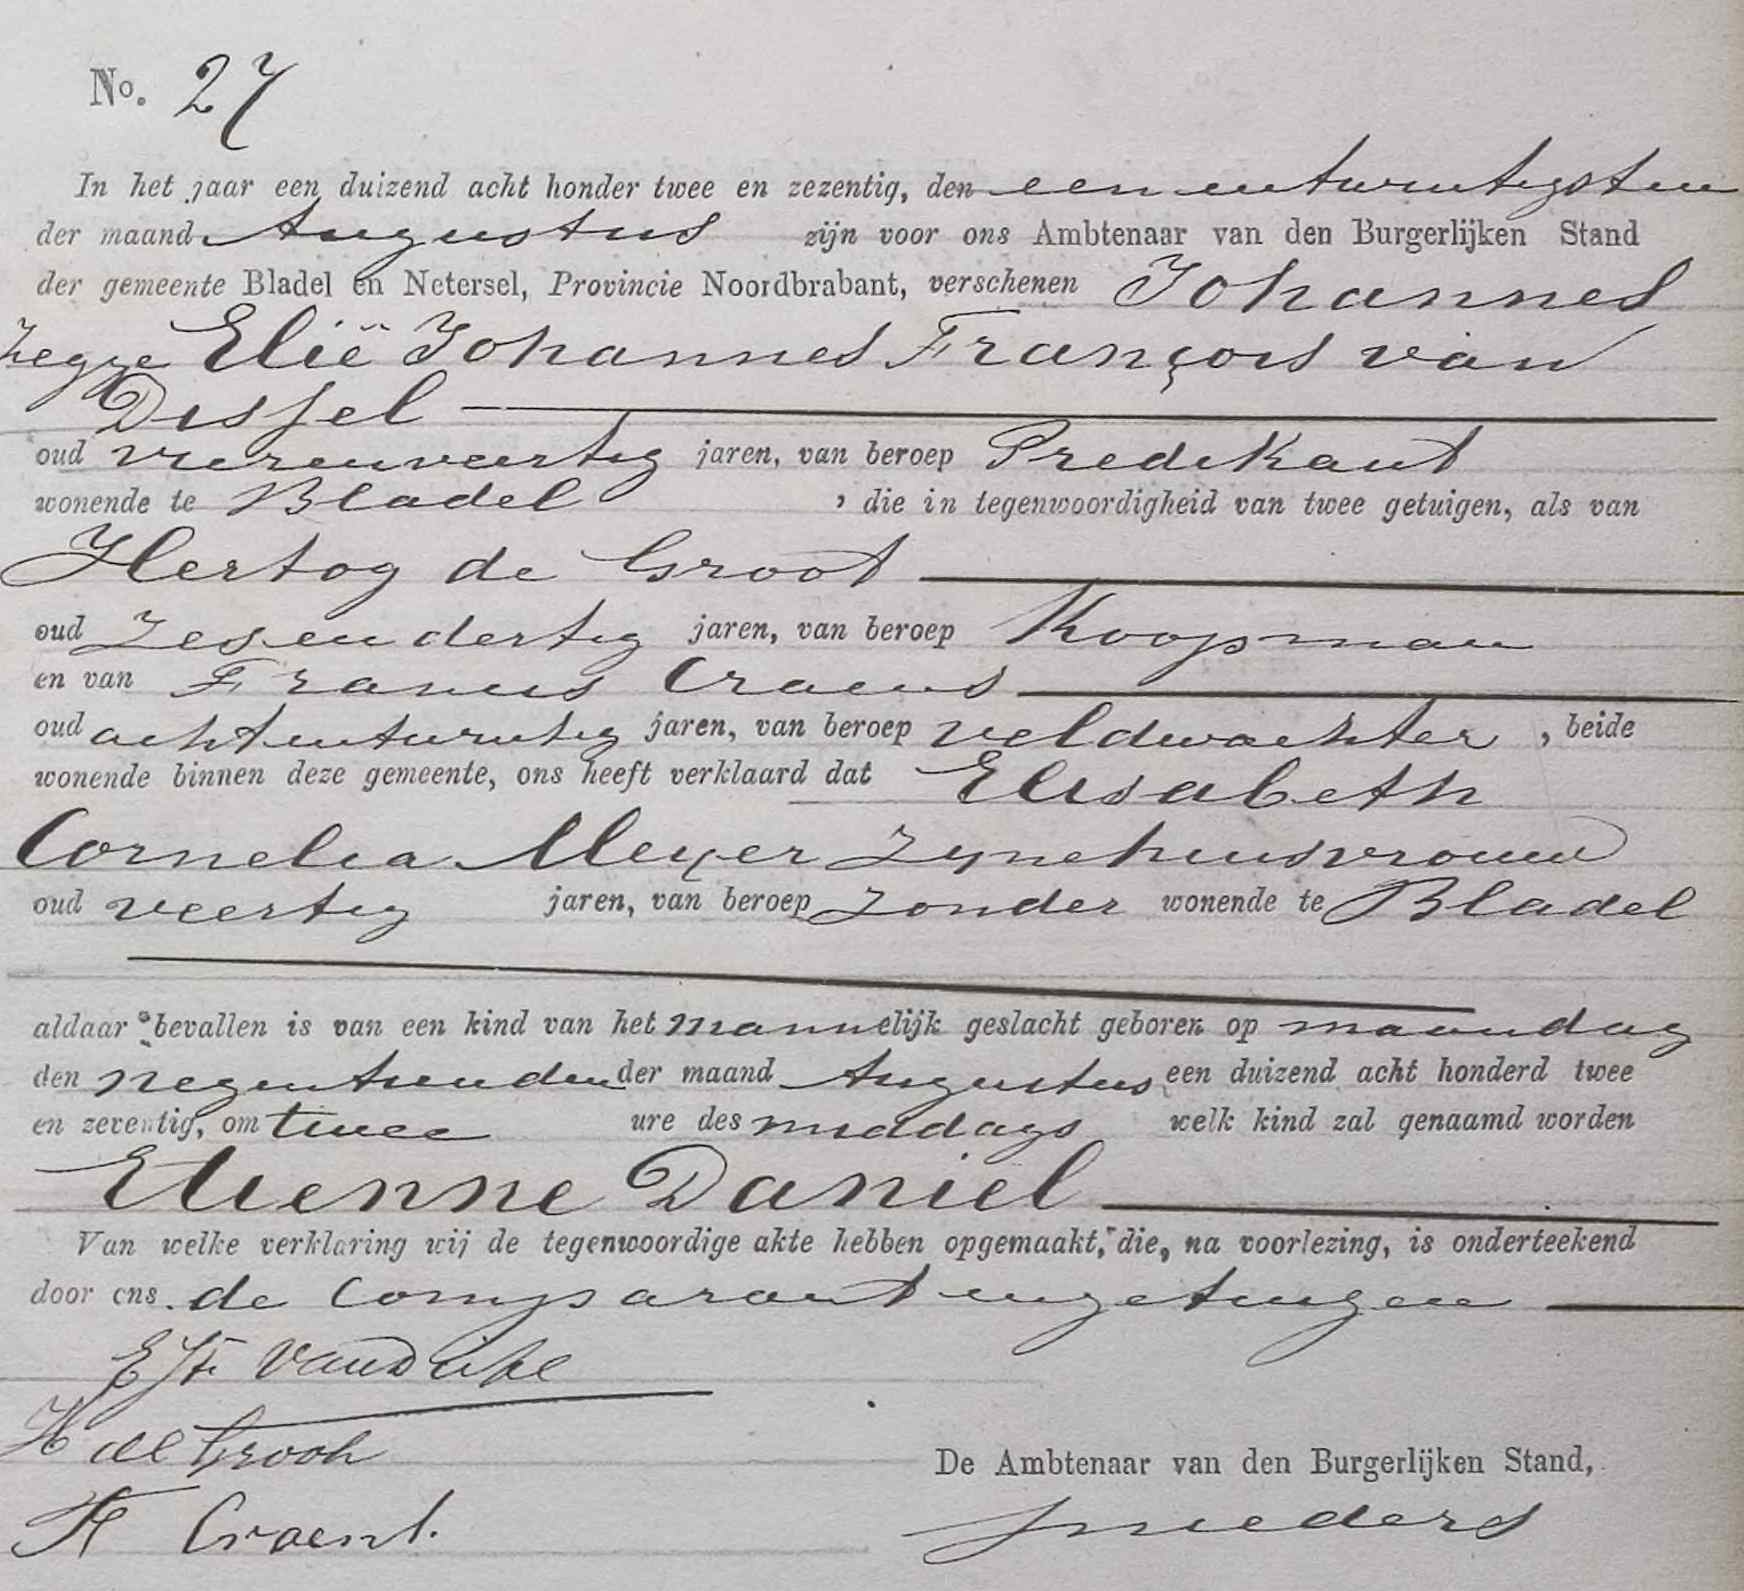 No. 27
In het jaar een duizend acht honder twee en zezentig, den eenentwintigsten
der maand Augustus zijn voor ons Ambtenaar van den Burgerlijken Stand
der gemeente Bladel en Netersel, Provincie Noordbrabant, verschenen Johannes
zegge Elië Johannes François van
Dissel
oud vierenveertig jaren, van beroep Predikant
wonende te Bladel, die in tegenwoordigheid van twee getuigen, als van
Hertog de Groot
oud Zesendertig jaren, van beroep Koopman
en van Francis Craens
oud achtentwintig jaren, van beroep veldwachter, beide
wonende binnen deze gemeente, ons heeft verklaard dat Elisabeth
Cornelia Meyer Zyne huisvrouw
oud veertig jaren, van beroep zonder wonende te Bladel
aldaar bevallen is van een kind van het mannelijk geslacht geboren op maandag
den negentienden der maand Augustus een duizend acht honderd twee
en zeventig, om twee ure des middags welk kind zal genaamd worden
Etienne Daniel
Van welke verklaring wij de tegenwoordige akte hebben opgemaakt, die, na voorlezing, is onderteekend
door ons de Comparant en getuigen
EJF van Dissel
H de Groot
F Craens.
De Ambtenaar van den Burgerlijken Stand,
Smeders